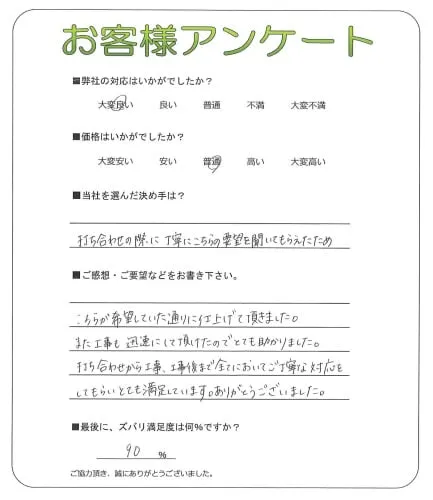 お客様アンケート
■弊社の対応はいかがでしたか？
大変良い 良い 普通 不満 大変不満
■価格はいかがでしたか？
大変安い 安い 普通 高い 大変高い
■当社を選んだ決め手は？
打ち合わせの際に丁寧にこちらの要望を聞いてもらえたため
■ご感想・ご要望などをお書き下さい。
こちらが希望していた通りに仕上げて頂きました。
また工事も迅速にして頂けたのでとても助かりました。
打ち合わせから工事、工事後まで全てにおいてご丁寧な対応を
してもらいとても満足しています。ありがとうございました。
■最後に、ズバリ満足度は何％ですか？
90 ％
ご協力頂き、誠にありがとうございました。